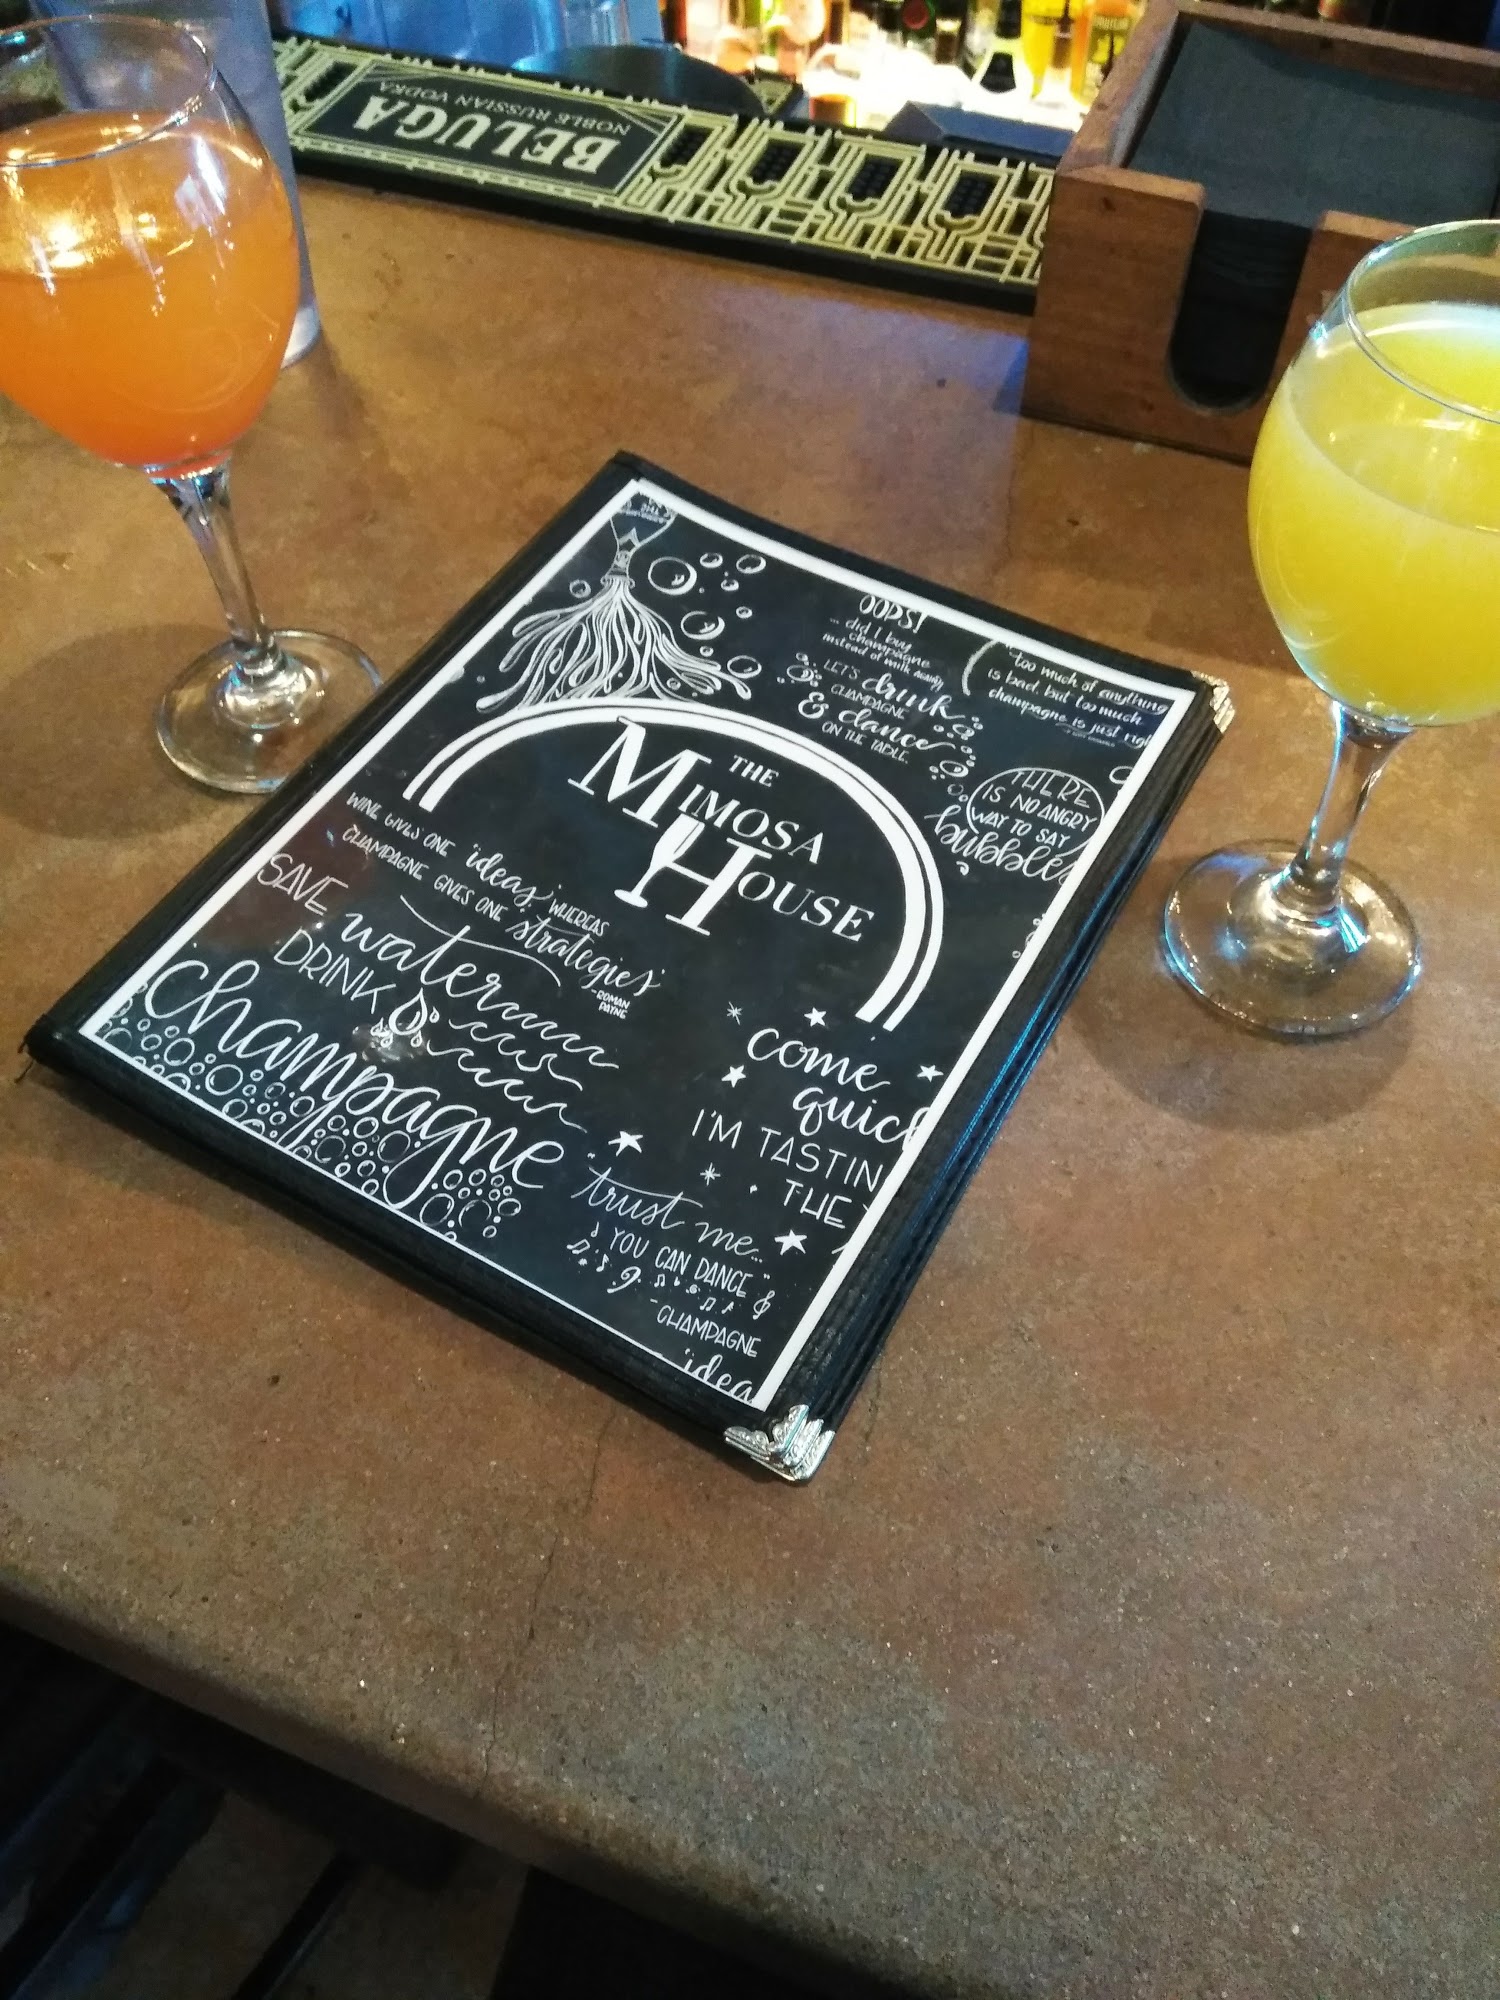 BELUGA
NOBLE RUSSIAN VODKA
OOPS!
... did I buy
champagne
instead of milk, again?
LET'S drink
CHAMPAGNE
& dance
ON THE TABLE
"too much of anything
is bad, but too much
champagne is just righ
THERE
IS NO ANGRY
WAY TO SAY
bubbles
THE
MIMOSA
HOUSE
WINE GIVES ONE 'ideas,' WHEREAS
CHAMPAGNE GIVES ONE 'strategies'
-ROMAN
PAYNE
SAVE water
DRINK
champagne
come
quick
I'M TASTIN
THE
"trust me...
YOU CAN DANCE"
-CHAMPAGNE
'idea